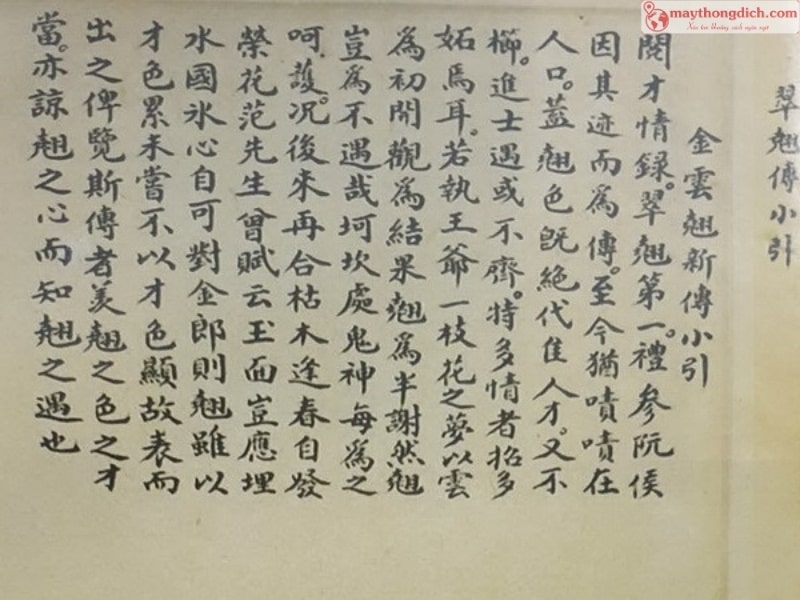 maythongdich.com
Xóa tan khoảng cách ngôn ngữ
翠翹傳小引
金雲翹新傳小引
閱才情録。翠翹第一。禮參阮侯
因其迹而爲傳。至今猶嘖嘖在
人口。蓋翹色既絶代佳人才。又不
櫛。進士遇或不齊。特多情者招多
妬焉耳。若執王爺一枝花之夢以雲
爲初開觀爲結果翹爲半謝然翹
豈爲不遇哉坷坎處鬼神每爲之
呵護。况後來再合枯木逢春自發
榮花范先生曾賦云玉面豈應埋
水國氷心自可對金郎則翹雖以
才色累未嘗不以才色顯故表而
出之俾覽斯傳者羙翹之色之才
當。亦諒翹之心而知翹之遇也